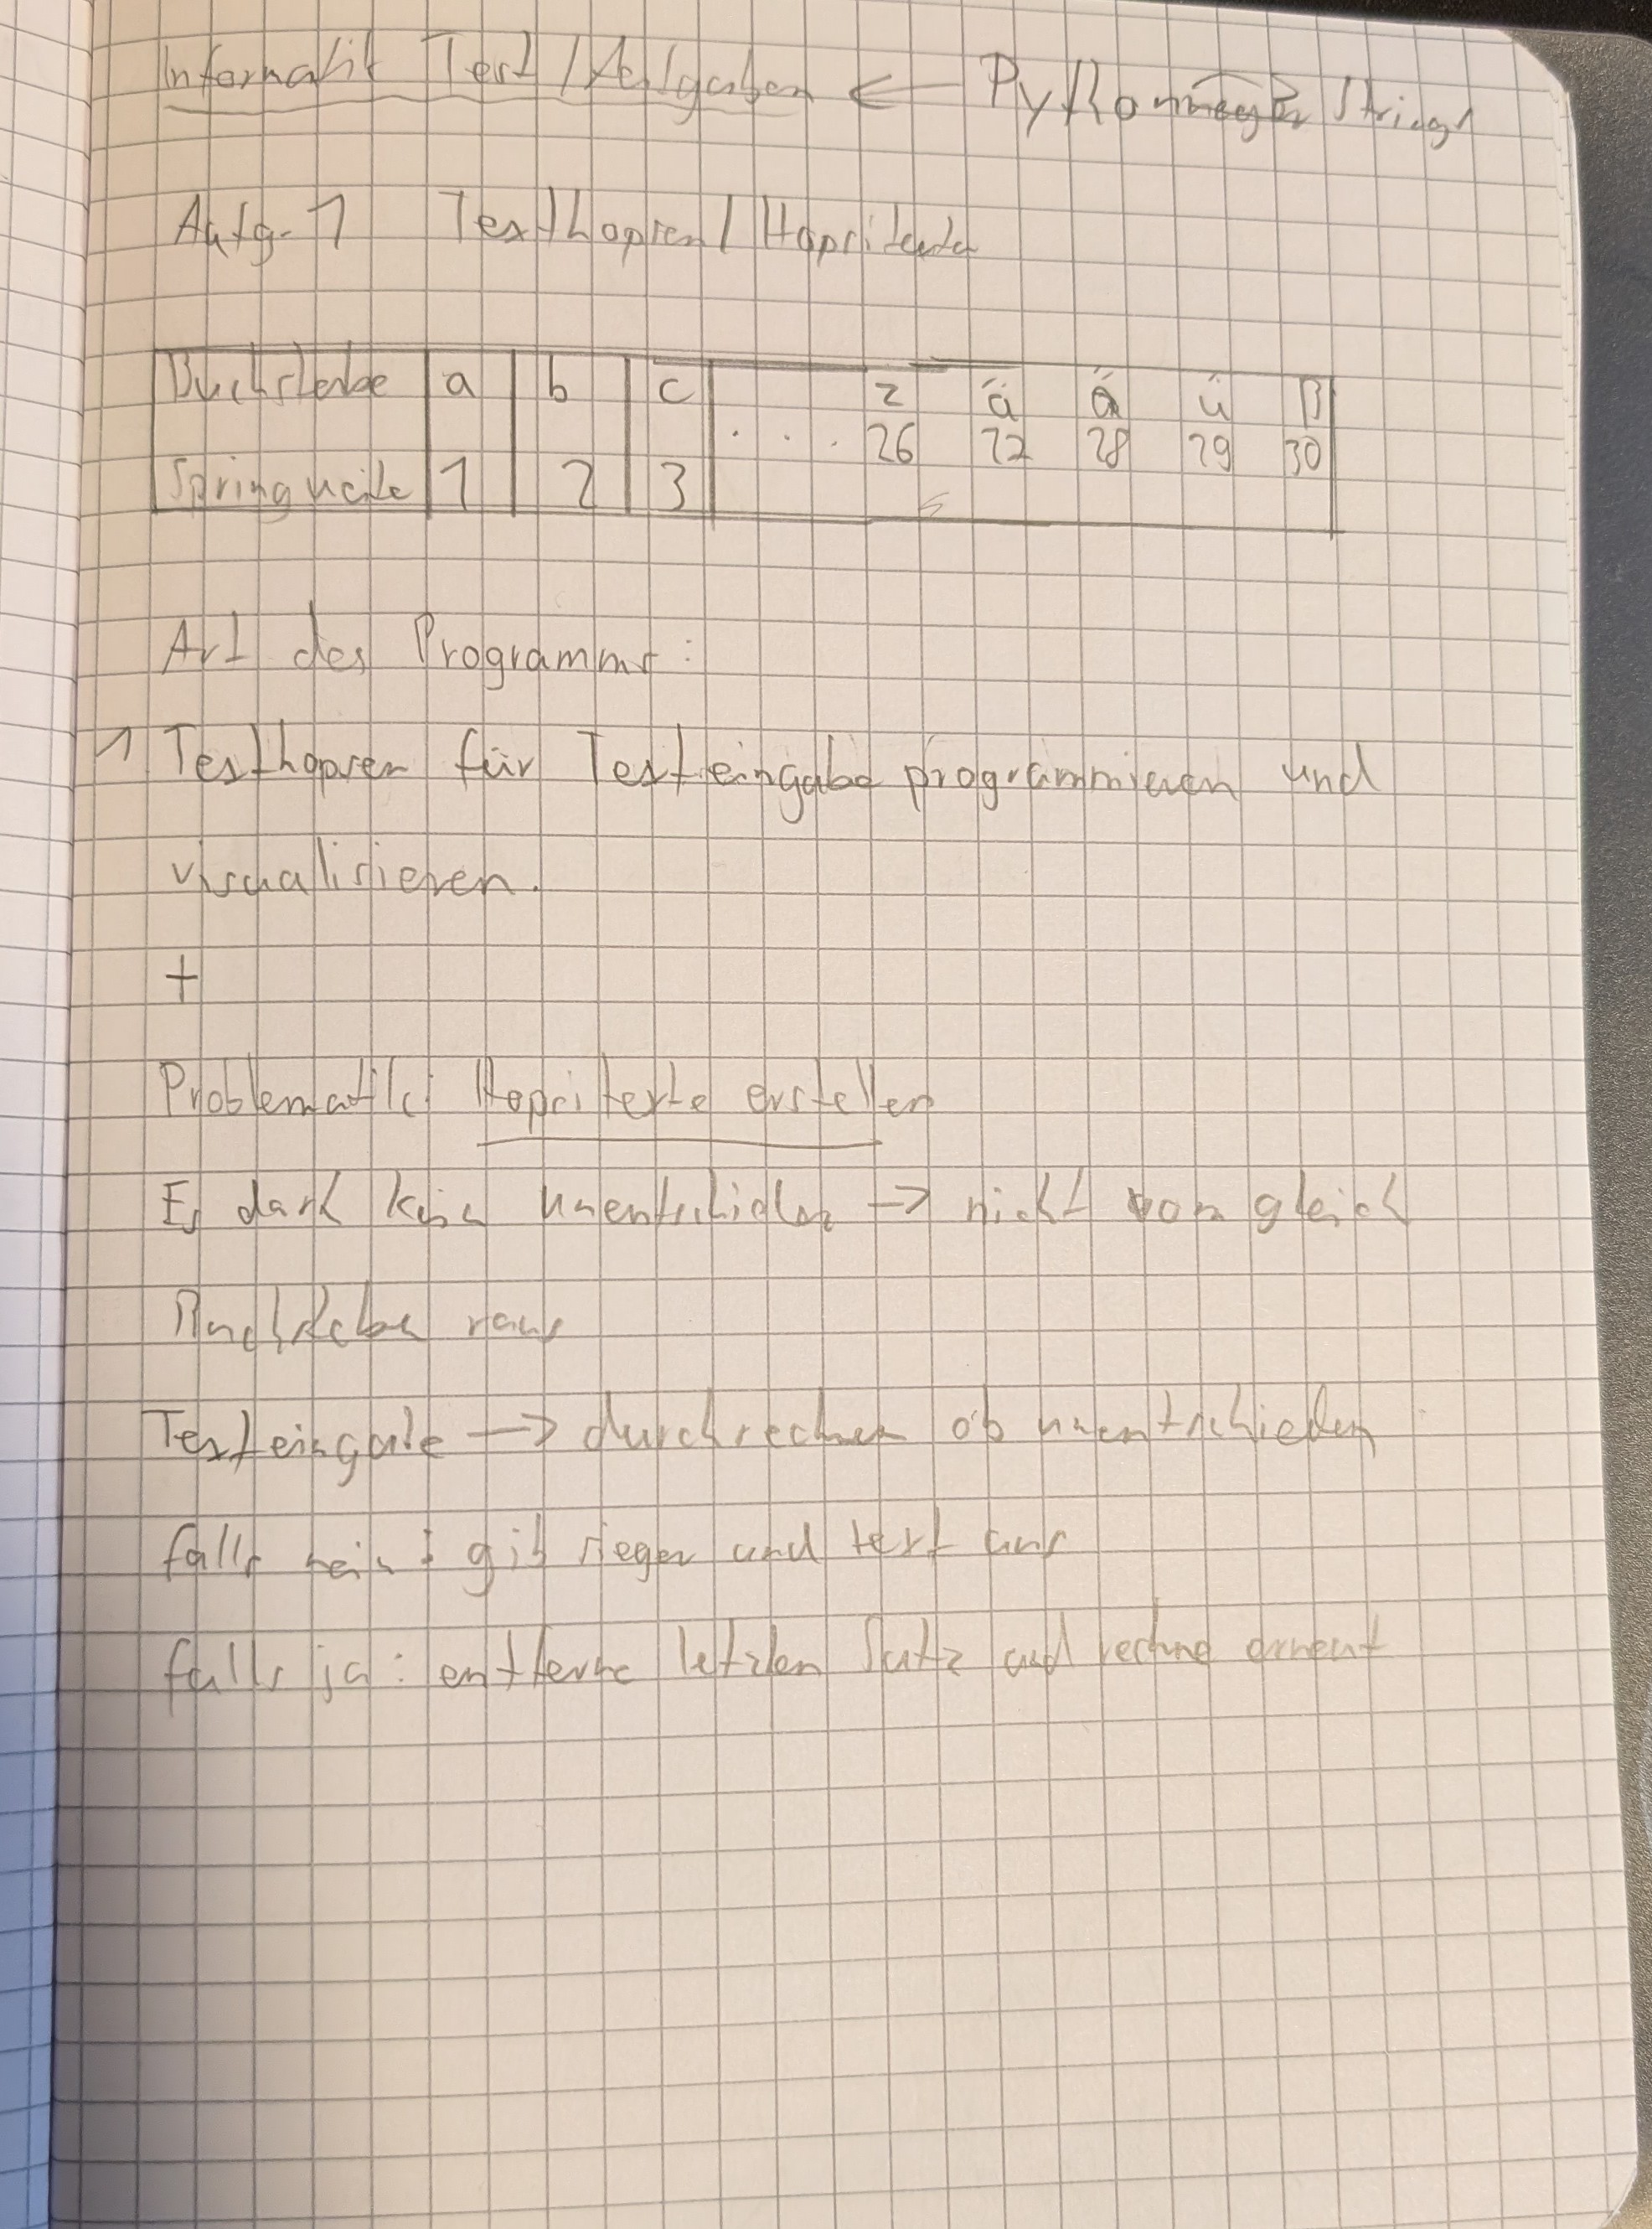 Informatik Test / Aufgaben ← Python Strings
Aufg. 1 Texthopsen / Hopsitexte
Buchstabe a b c z ä ö ü ß
. . . 26 27 28 29 30
Springweite 1 2 3
Art des Programms:
1 Texthopsen für Texteingabe programmieren und
visualisieren.
+
Problematik: Hopsitexte erstellen
Es darf kein unentschieden → nicht vom gleich
Buchstabe raus
Texteingabe → durchrechnen ob unentschieden
falls nein: gib sieger und text aus
falls ja: entferne letzten Satz und rechne erneut